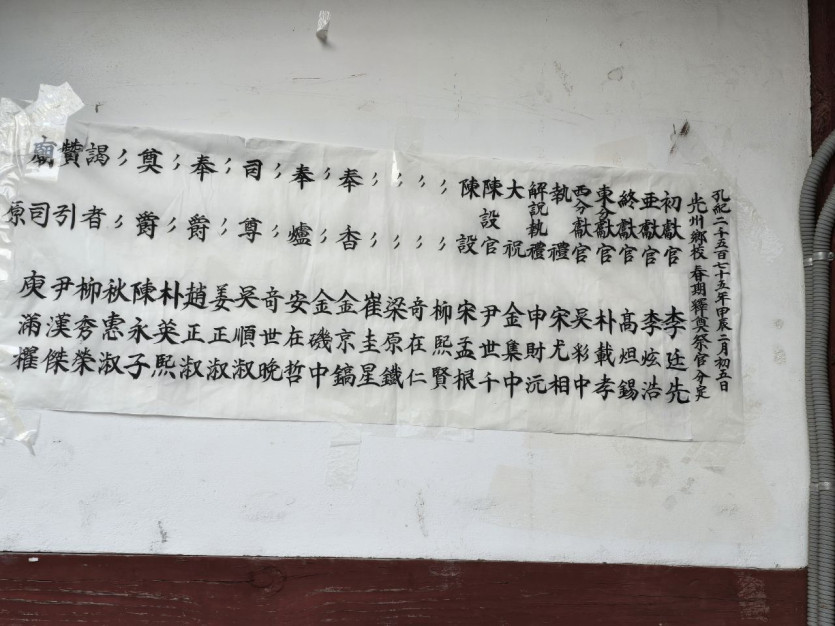 孔紀二千五百七十五年甲辰二月初五日
光州鄕校 春期釋奠祭官分定
初獻官 李廷先
亞獻官 李炫浩
終獻官 高烜錫
東分獻官 朴載孝
西分獻官 吳彩中
執禮 宋尤相
解說執禮 申財沅
大祝 金集中
陳設官 尹世千
陳設 宋孟根
〃〃 柳熙賢
〃〃 奇在仁
〃〃 梁原鐵
〃〃 崔圭星
奉香 金京鎬
〃〃 金磯中
奉爐 安在哲
〃〃 奇世晩
司尊 吳順淑
〃〃 姜正淑
奉爵 趙正淑
〃〃 朴英熙
奠爵 陳永子
〃〃 秋惠淑
謁者 柳秀榮
贊引 尹漢傑
廟司 庾滿
原